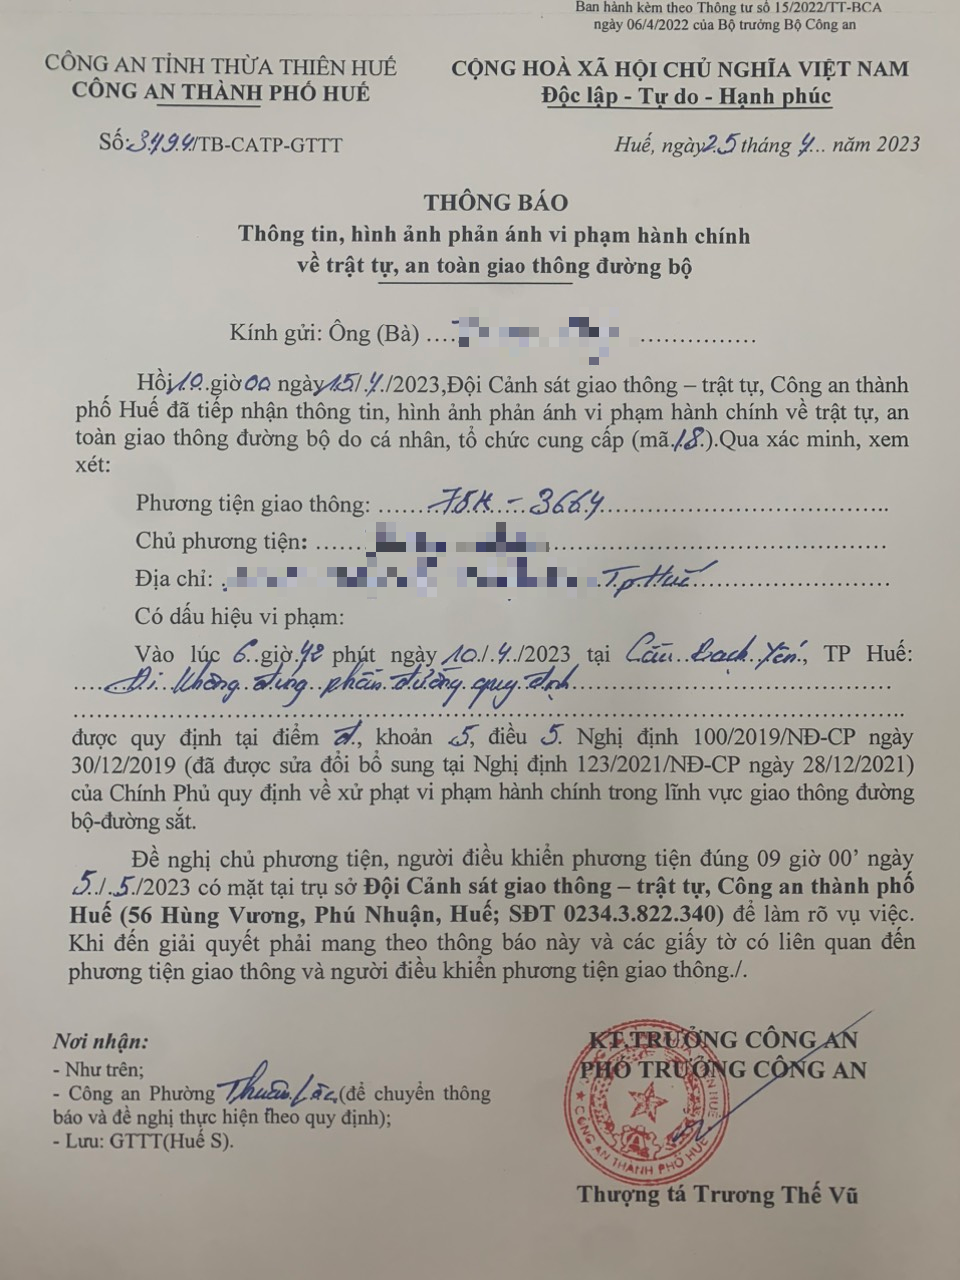 Ban hành kèm theo Thông tư số 15/2022/TT-BCA
ngày 06/4/2022 của Bộ trưởng Bộ Công an
CÔNG AN TỈNH THỪA THIÊN HUẾ
CÔNG AN THÀNH PHỐ HUẾ
CỘNG HOÀ XÃ HỘI CHỦ NGHĨA VIỆT NAM
Độc lập - Tự do - Hạnh phúc
Số: 3494/TB-CATP-GTTT
Huế, ngày 25 tháng 4... năm 2023
THÔNG BÁO
Thông tin, hình ảnh phản ánh vi phạm hành chính
về trật tự, an toàn giao thông đường bộ
Kính gửi: Ông (Bà) .... ...............
Hồi 10 giờ 00 ngày 15/4/2023, Đội Cảnh sát giao thông – trật tự, Công an thành
phố Huế đã tiếp nhận thông tin, hình ảnh phản ánh vi phạm hành chính về trật tự, an
toàn giao thông đường bộ do cá nhân, tổ chức cung cấp (mã 18.).Qua xác minh, xem
xét:
Phương tiện giao thông: 75H - 3664
Chủ phương tiện:
Địa chỉ: Tp Huế
Có dấu hiệu vi phạm:
Vào lúc 6 giờ 42 phút ngày 10/4/2023 tại Cầu Bạch Yến, TP Huế:
Đi không đúng phần đường quy định
được quy định tại điểm đ, khoản 5, điều 5. Nghị định 100/2019/NĐ-CP ngày
30/12/2019 (đã được sửa đổi bổ sung tại Nghị định 123/2021/NĐ-CP ngày 28/12/2021)
của Chính Phủ quy định về xử phạt vi phạm hành chính trong lĩnh vực giao thông đường
bộ-đường sắt.
Đề nghị chủ phương tiện, người điều khiển phương tiện đúng 09 giờ 00’ ngày
5/5/2023 có mặt tại trụ sở Đội Cảnh sát giao thông – trật tự, Công an thành phố
Huế (56 Hùng Vương, Phú Nhuận, Huế; SĐT 0234.3.822.340) để làm rõ vụ việc.
Khi đến giải quyết phải mang theo thông báo này và các giấy tờ có liên quan đến
phương tiện giao thông và người điều khiển phương tiện giao thông./.
Nơi nhận:
- Như trên;
- Công an Phường Thuận Lộc (để chuyển thông
báo và đề nghị thực hiện theo quy định);
- Lưu: GTTT(Huế S).
KT.TRƯỞNG CÔNG AN
PHÓ TRƯỞNG CÔNG AN
CÔNG AN THÀNH PHỐ HUẾ
Thượng tá Trương Thế Vũ